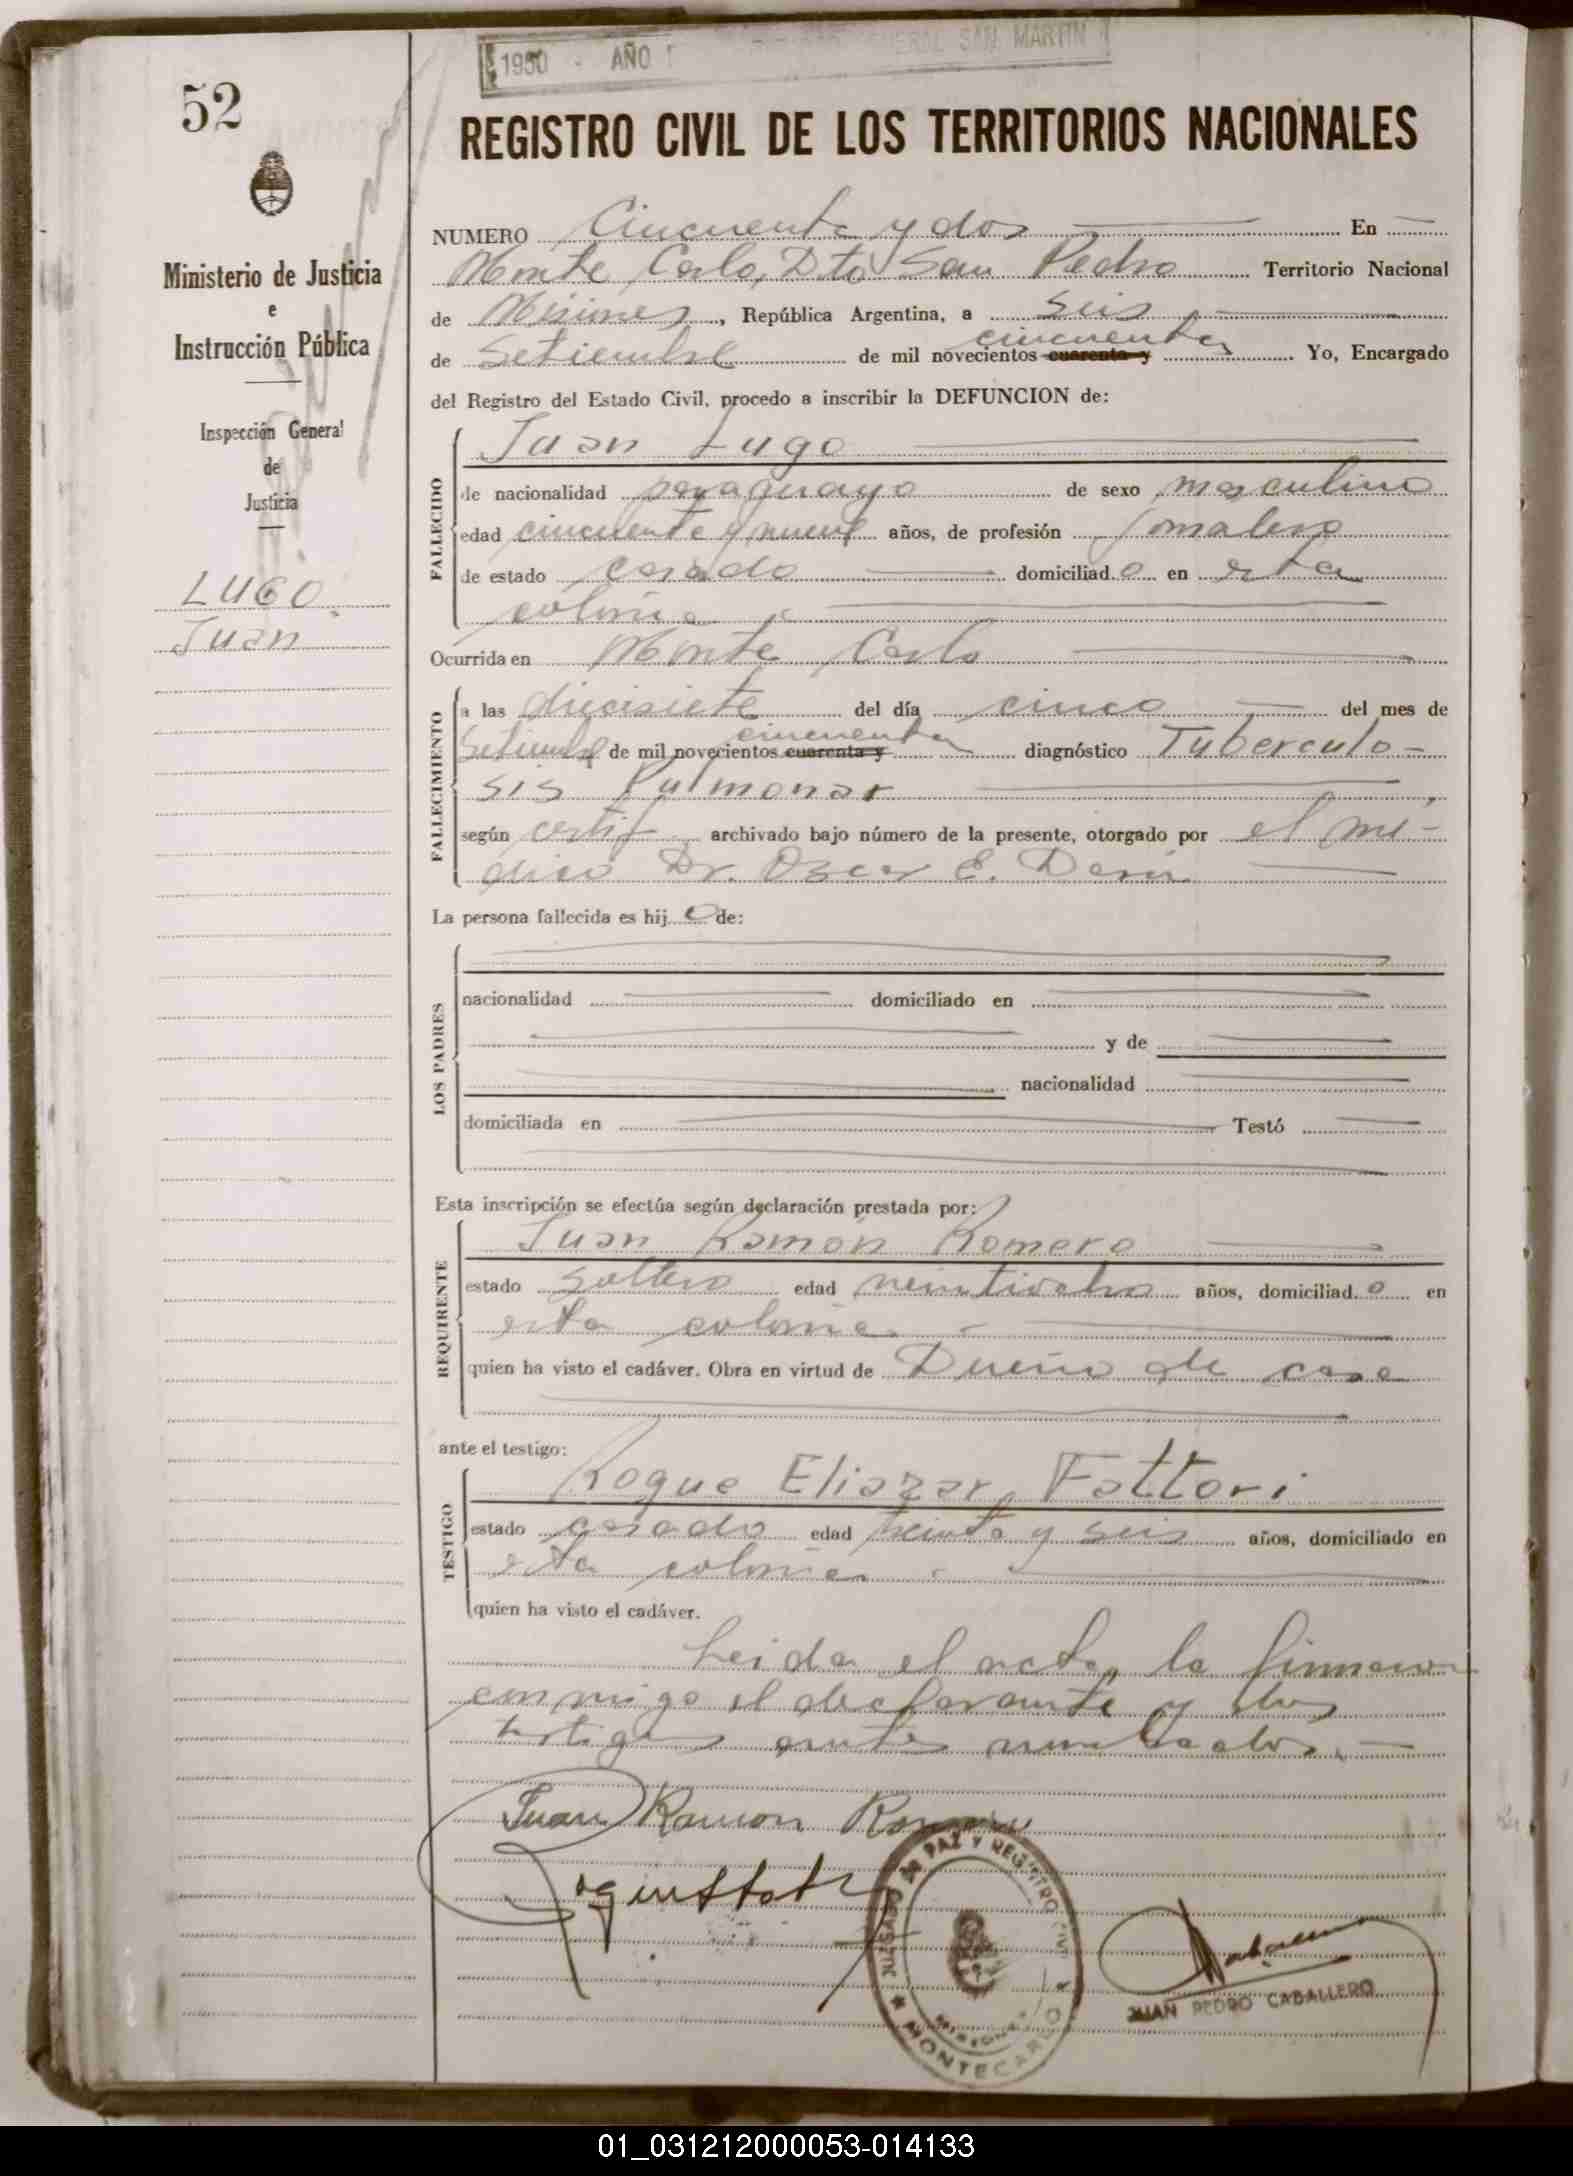 1950 - AÑO GENERAL SAN MARTIN
52
REGISTRO CIVIL DE LOS TERRITORIOS NACIONALES
Ministerio de Justicia
e
Instrucción Pública
Inspección General
de
Justicia
LUGO
Juan
NUMERO Cincuenta y dos En
Monte Carlo, Dto San Pedro Territorio Nacional
de Misiones, República Argentina, a seis
cincuenta
de Setiembre de mil novecientos cuarenta y Yo, Encargado
del Registro del Estado Civil, procedo a inscribir la DEFUNCION de:
FALLECIDO
Juan Lugo
de nacionalidad paraguayo de sexo masculino
edad cincuenta y nueve años, de profesión jornalero
de estado casado domiciliad o en esta
colonia
Ocurrida en Monte Carlo
FALLECIMIENTO
a las diecisiete del día cinco del mes de
cincuenta
Setiembre de mil novecientos cuarenta y diagnóstico Tuberculo-
sis Pulmonar
según certif archivado bajo número de la presente, otorgado por el mé-
dico Dr. Oscar E.
La persona fallecida es hij o de:
LOS PADRES
nacionalidad domiciliado en
y de
nacionalidad
domiciliada en Testó
Esta inscripción se efectúa según declaración prestada por:
REQUIRENTE
Juan Ramón Romero
estado soltero edad veintiocho años, domiciliad o en
esta colonia
quien ha visto el cadáver. Obra en virtud de Dueño de casa
ante el testigo:
TESTIGO
Roque Eliazar Fattori
estado casado edad treinta y seis años, domiciliado en
esta colonia
quien ha visto el cadáver.
Leida el acta, la firmaron
conmigo el declarante y los
testigos antes nombrados.
Juan Ramon Romero
JUZGADO DE PAZ Y REGISTRO CIVIL
MISIONES
MONTECARLO
JUAN PEDRO CABALLERO
01_031212000053-014133